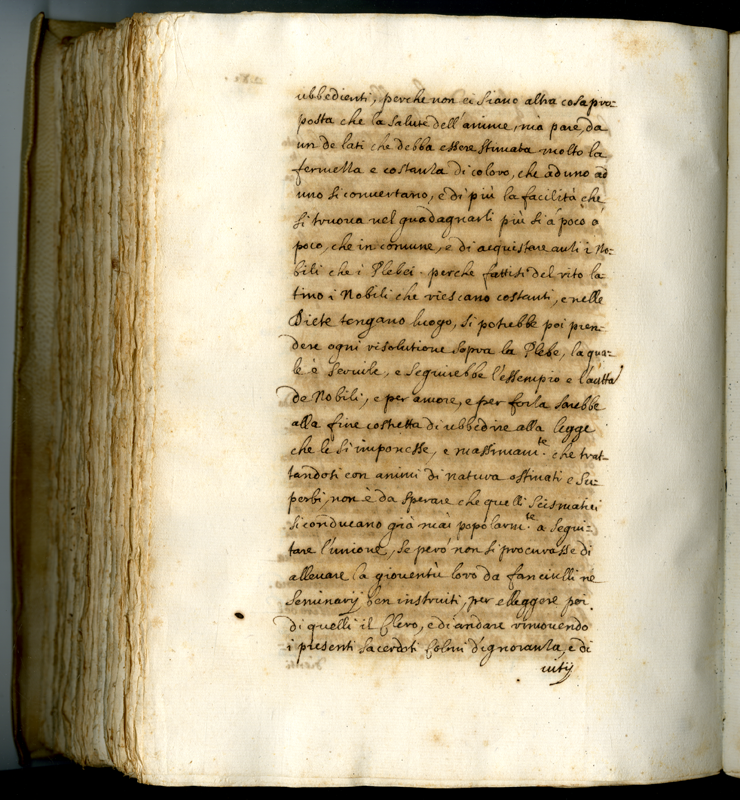 ubbedienti, perche non ci siano altra cosa pro=
posta che la salute dell'anime, ma pare, da
un de lati che debba essere stimata molto la
fermezza e costanza di coloro, che ad uno ad
uno si convertano, e di più la facilità che
si truova nel guadagnarli più si à poco à
poco, che in comune, e di acquistare anti i No=
bili che i Plebei. perche fattisi del rito la=
tino i Nobili che riescano costanti, e nelle
Diete tengano luogo, si potrebbe poi pren=
dere ogni risolutione sopra la Plebe, la qua=
le è servile, e seguirebbe l'essempio e l'autta
de Nobili, e per amore, e per forza sarebbe
alla fine costretta di ubbedire alla legge
che le si imponesse, e massimam.te che trat=
tandosi con animi di natura ostinati e su=
perbi, non è da sperare che quelli Scismatici
si conducano già mai popolarm.te a segui=
tare l'unione, se però non si procurasse di
allevare la gioventù loro da fanciulli ne
Seminarij ben instruiti, per elleggere poi
di quelli il Clero, e di andare rimovendo
i presenti Sacerdoti Colmi d'ignoranza, e di
vitij